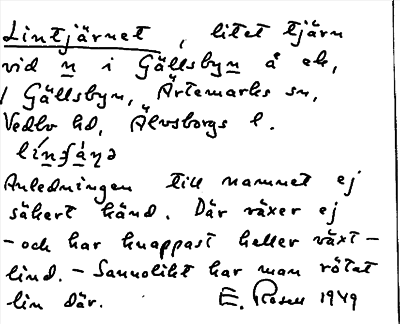 Lintjärnet, litet tjärn
vid n i Gällsbyn å ek,
i Gällsbyn, Ärtemarks sn,
Vedbo hd, Älvsborgs l.
Anledningen till namnet ej
säkert känd. Där växer ej
-och har knappast heller växt-
lind. - Sannolikt har man rötat
lin där. E. Rosell 1949